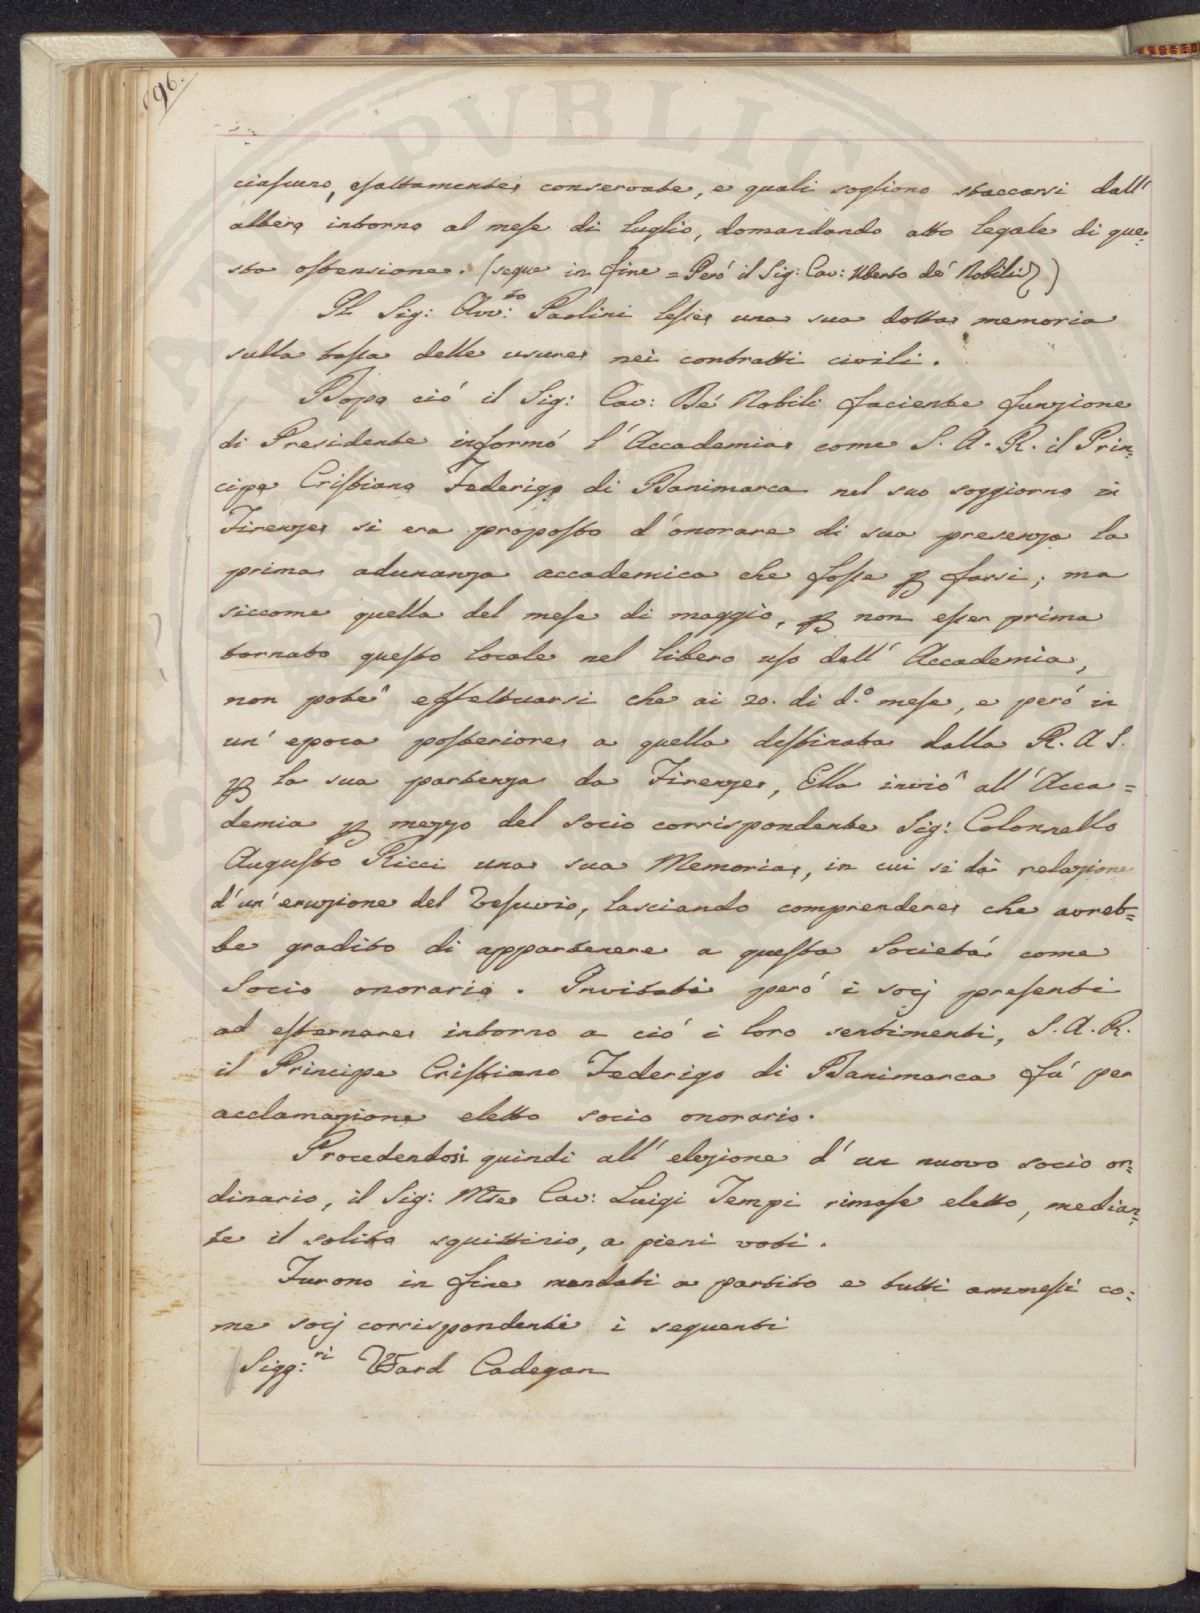 96.
ciascuno, esattamente conservate, e quali sogliono staccarsi dall'
albero intorno al mese di luglio, domandando atto legale di que=
sta ostensione. (segue in fine = Però il Sig: Cav: Uberto de' Nobili)
Il Sig: Avv:to Paolini lesse una sua dotta memoria
sulla tassa delle usure nei contratti civili.
Dopo ciò il Sig: Cav: De' Nobili faciente funzione
di Presidente informò l'Accademia come S. A. R. il Prin=
cipe Cristiano Federigo di Danimarca nel suo soggiorno in
Firenze si era proposto d'onorare di sua presenza la
prima adunanza accademica che fosse p farsi; ma
siccome quella del mese di maggio, p non esser prima
tornato questo locale nel libero uso dell'Accademia,
non potè effettuarsi che ai 20. di d.o mese, e però in
un'epoca posteriore a quella destinata dalla R. A. S.
p la sua partenza da Firenze, Ella inviò all'Acca=
demia p mezzo del socio corrispondente Sig: Colonnello
Augusto Ricci una sua Memoria, in cui si dà relazione
d'un'eruzione del Vesuvio, lasciando comprendere che avreb=
be gradito di appartenere a questa Società come
Socio onorario. Invitati però i socj presenti
ad esternare intorno a ciò i loro sentimenti, S. A. R.
il Principe Cristiano Federigo di Danimarca fù per
acclamazione eletto socio onorario.
Procedendosi quindi all'elezione d'un nuovo socio or=
dinario, il Sig: Mse Cav: Luigi Tempi rimase eletto, median=
te il solito squittinio, a pieni voti.
Furono in fine mandati a partito e tutti ammessi co=
me socj corrispondenti i seguenti
Sigg:ri Ward Cadogan
PVBLICA